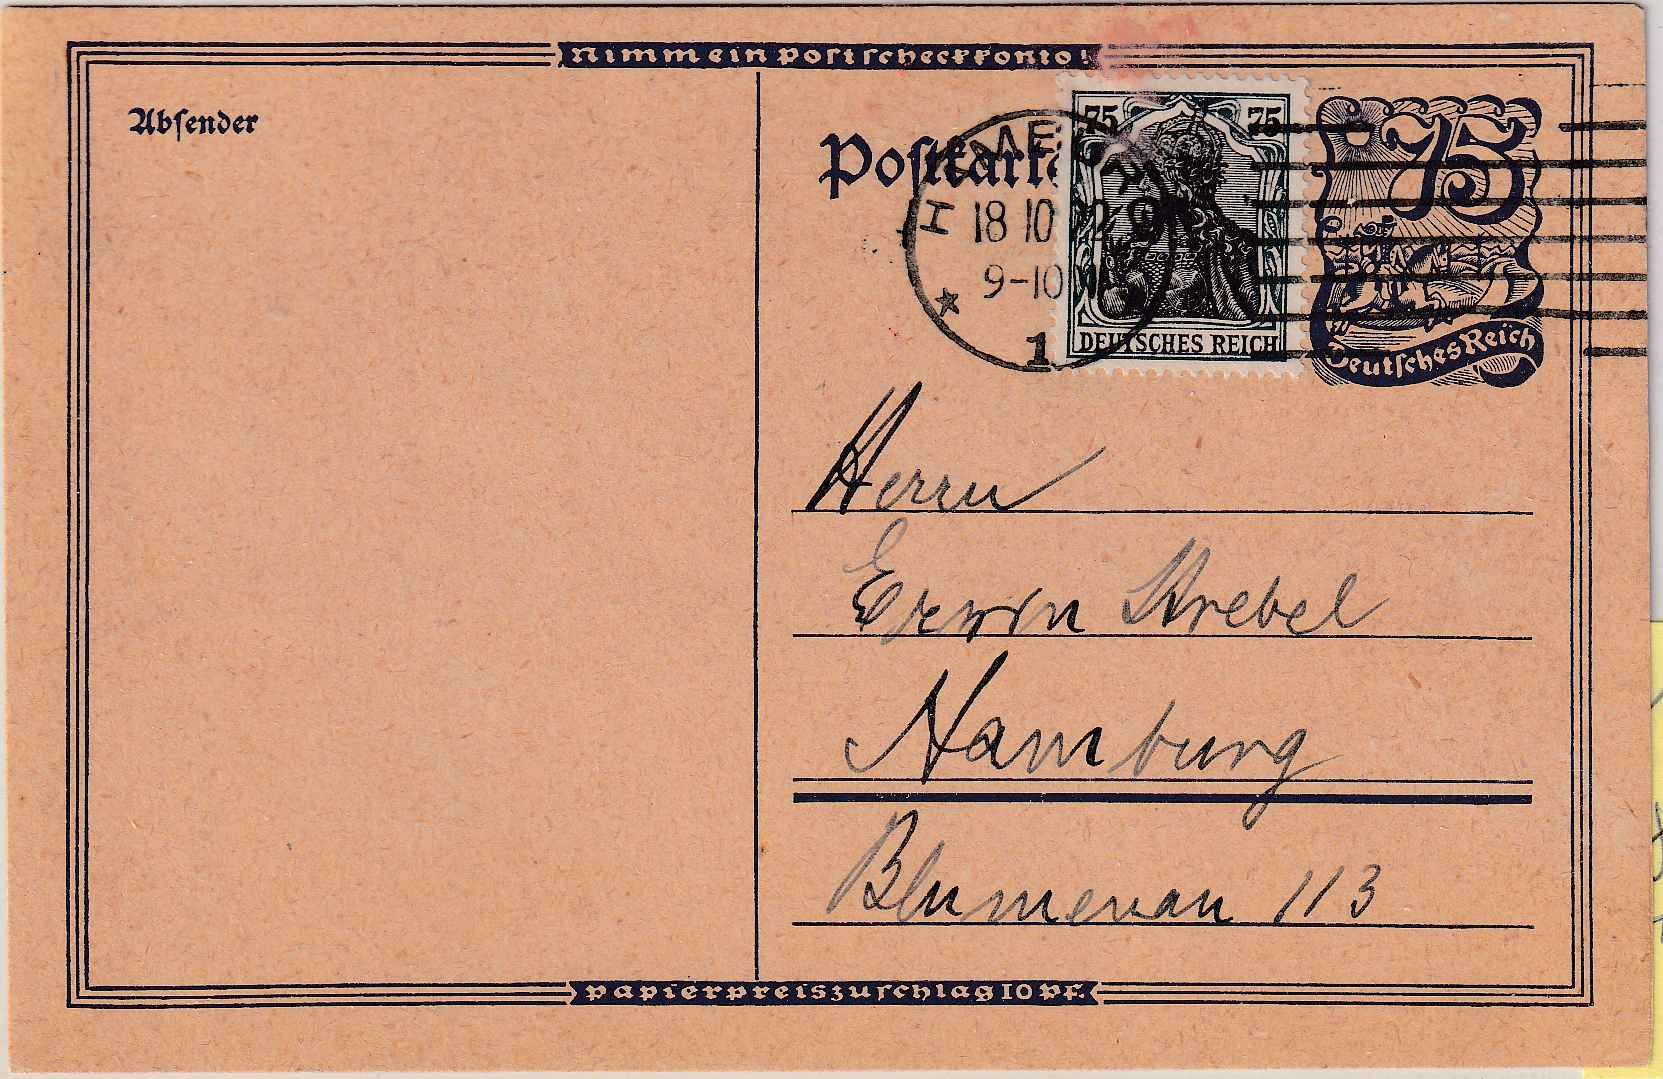 Nimm ein Postscheckkonto!
Absender
Postkarte
75 75
DEUTSCHES REICH
75
Deutsches Reich
18 10 22 9
9-10
1
Herrn
Erwin Krebel
Hamburg
Blumenau 113
Papierpreiszuschlag 10 Pf.